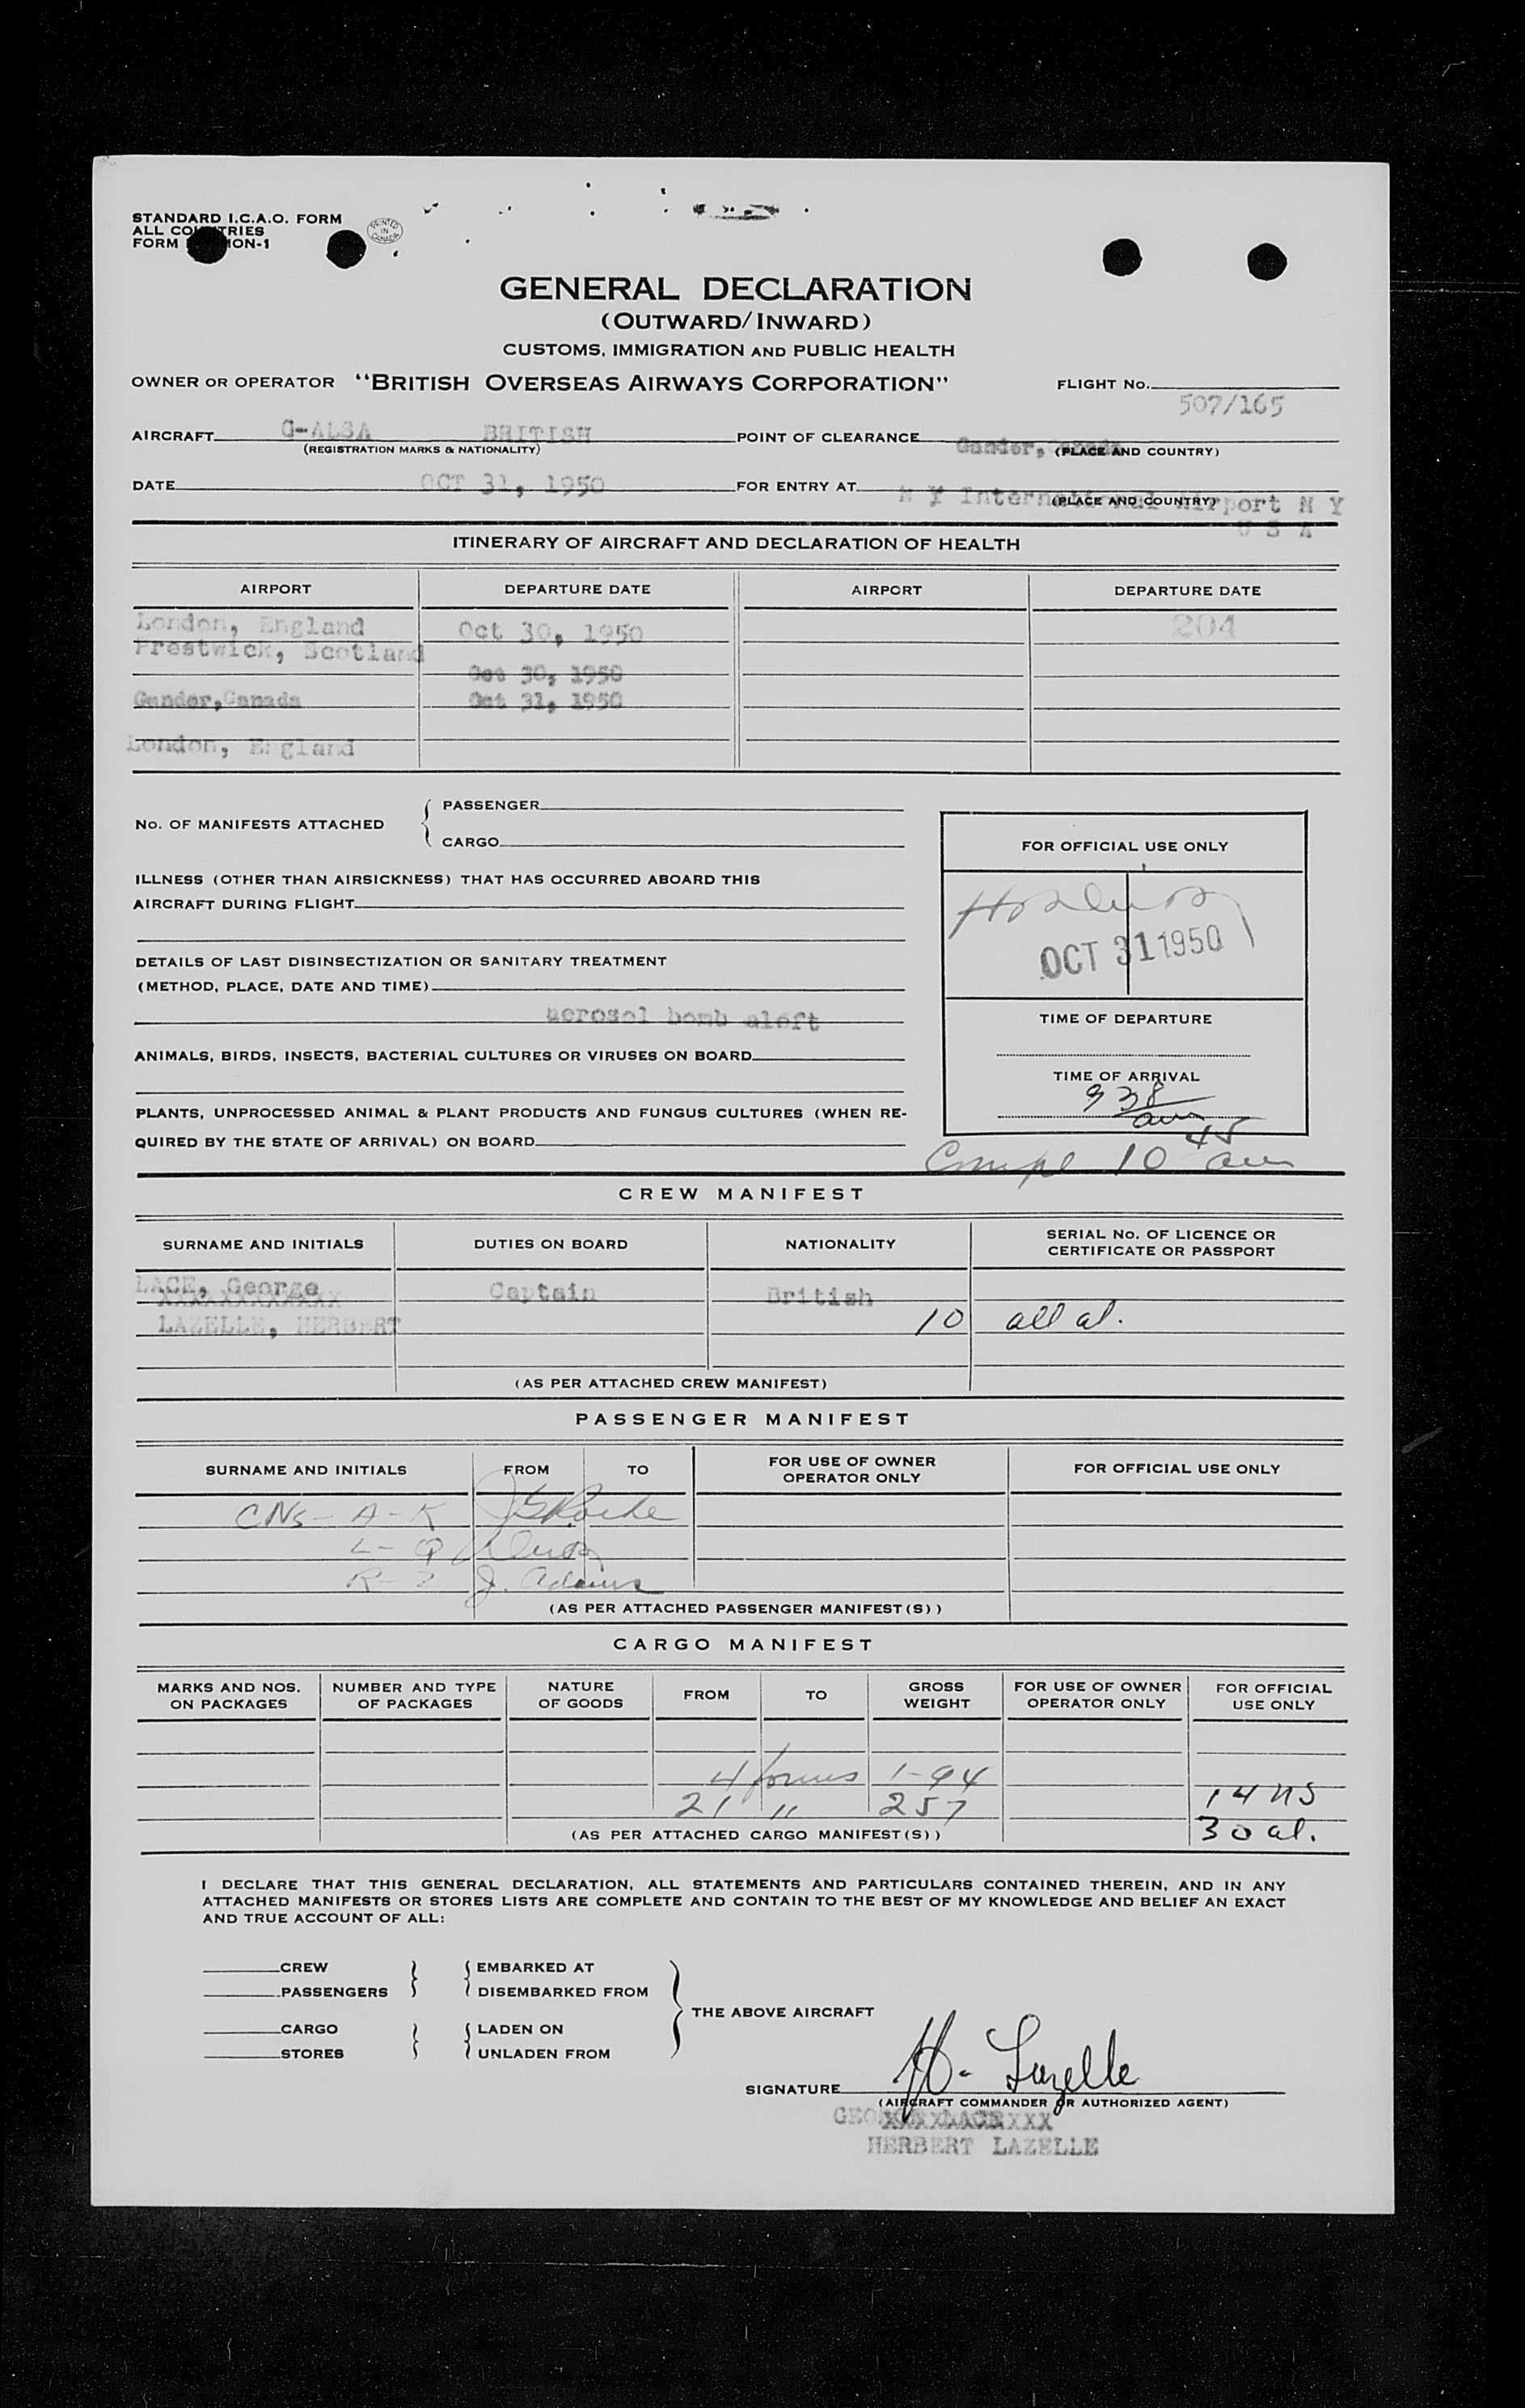 STANDARD I.C.A.O. FORM
ALL COUNTRIES
FORM ON-1
PRINTED IN CANADA
GENERAL DECLARATION
(OUTWARD/INWARD)
CUSTOMS, IMMIGRATION AND PUBLIC HEALTH
OWNER OR OPERATOR "BRITISH OVERSEAS AIRWAYS CORPORATION" FLIGHT No. 507/165
AIRCRAFT G-ALSA BRITISH POINT OF CLEARANCE Gander, Canada
(REGISTRATION MARKS & NATIONALITY) (PLACE AND COUNTRY)
DATE OCT 31, 1950 FOR ENTRY AT N Y International Airport N Y
(PLACE AND COUNTRY) U S A
ITINERARY OF AIRCRAFT AND DECLARATION OF HEALTH
AIRPORT DEPARTURE DATE AIRPORT DEPARTURE DATE
London, England Oct 30, 1950 204
Prestwick, Scotland
Oct 30, 1950
Gander, Canada Oct 31, 1950
London, England
No. OF MANIFESTS ATTACHED
PASSENGER
CARGO
ILLNESS (OTHER THAN AIRSICKNESS) THAT HAS OCCURRED ABOARD THIS
AIRCRAFT DURING FLIGHT
DETAILS OF LAST DISINSECTIZATION OR SANITARY TREATMENT
(METHOD, PLACE, DATE AND TIME)
aerosol bomb aloft
ANIMALS, BIRDS, INSECTS, BACTERIAL CULTURES OR VIRUSES ON BOARD
PLANTS, UNPROCESSED ANIMAL & PLANT PRODUCTS AND FUNGUS CULTURES (WHEN RE-
QUIRED BY THE STATE OF ARRIVAL) ON BOARD
FOR OFFICIAL USE ONLY
OCT 31 1950
TIME OF DEPARTURE
TIME OF ARRIVAL
9 38 am
Compl 10 45 am
CREW MANIFEST
SURNAME AND INITIALS DUTIES ON BOARD NATIONALITY SERIAL No. OF LICENCE OR
CERTIFICATE OR PASSPORT
LACE, George Captain British
XXXXXXXXXXXX
LAZELLE, HERBERT 10 all al.
(AS PER ATTACHED CREW MANIFEST)
PASSENGER MANIFEST
SURNAME AND INITIALS FROM TO FOR USE OF OWNER
OPERATOR ONLY FOR OFFICIAL USE ONLY
CNs - A-K
L-Q
R- J. Adams
(AS PER ATTACHED PASSENGER MANIFEST(S))
CARGO MANIFEST
MARKS AND NOS.
ON PACKAGES NUMBER AND TYPE
OF PACKAGES NATURE
OF GOODS FROM TO GROSS
WEIGHT FOR USE OF OWNER
OPERATOR ONLY FOR OFFICIAL
USE ONLY
4 forms 1-94
21 " 257 14 US
(AS PER ATTACHED CARGO MANIFEST(S)) 30 al.
I DECLARE THAT THIS GENERAL DECLARATION, ALL STATEMENTS AND PARTICULARS CONTAINED THEREIN, AND IN ANY
ATTACHED MANIFESTS OR STORES LISTS ARE COMPLETE AND CONTAIN TO THE BEST OF MY KNOWLEDGE AND BELIEF AN EXACT
AND TRUE ACCOUNT OF ALL:
CREW EMBARKED AT
PASSENGERS DISEMBARKED FROM
THE ABOVE AIRCRAFT
CARGO LADEN ON
STORES UNLADEN FROM
SIGNATURE H. Lazelle
(AIRCRAFT COMMANDER OR AUTHORIZED AGENT)
GEORGE LACE XXX
HERBERT LAZELLE